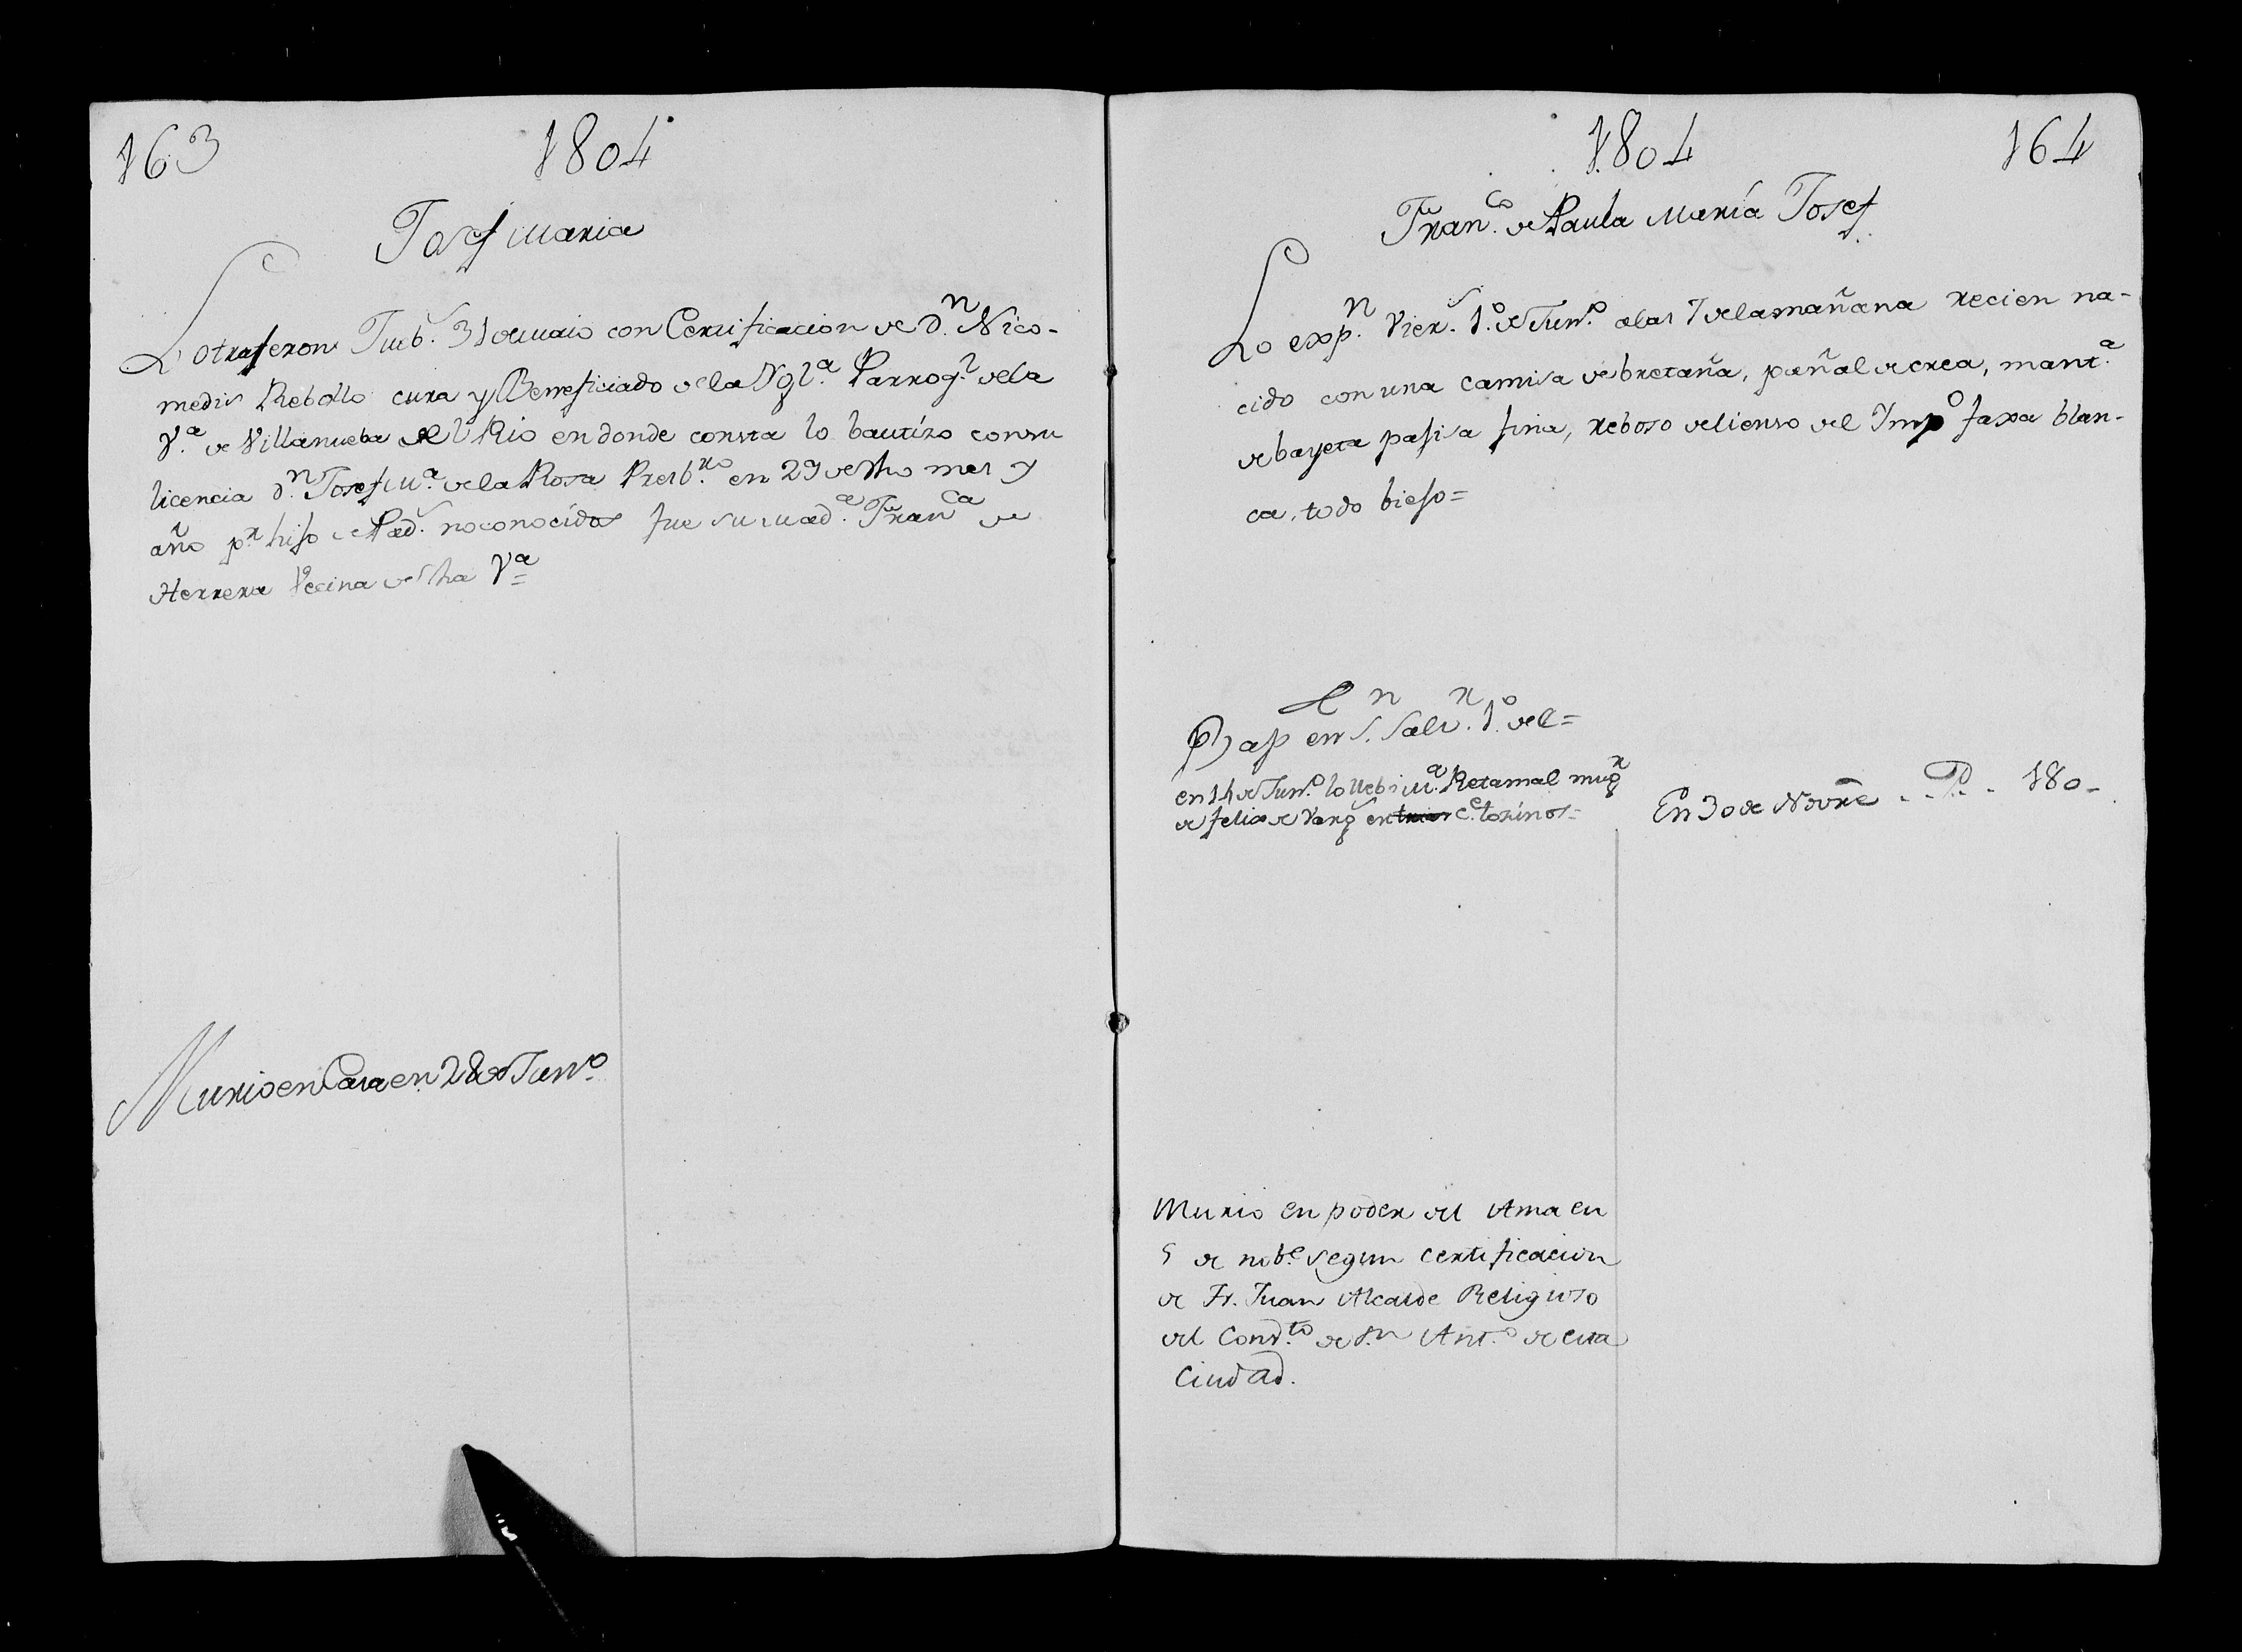 163
1804
Josef Maria
Lo trageron Jueb.s 31 de maio con Certificacion de D.n Nico-
medis Rebollo cura y Beneficiado de la Ygl.a Parroq.l de la
V.a de Villanueba del Rio en donde consta lo bautizo con su
licencia d.n Josef M.a de la Rosa Presb.ro en 29 de dho mes y
año p.r hijo de Pad.s no conocidos fue su mad.a Fran.ca de
Herrera Vecina de dha V.a=
Murio en Casa en 28 de Jun.o
1804
164
Fran.co de Paula María Josef
Lo exp.n Vier.s 1.o de Jun.o a las 7 de la mañana recien na-
cido con una camisa de bretaña, pañal de crea, mant.a
de bayeta pagisa fina, reboso de lienso del Imp.o faxa blan-
ca, todo biejo=
en S.n Salv.r 1.o del=
en 14 de Jun.o lo llebo M.a Retamal mug.r
de felix de Varg.s en c.e tosinos=
En 30 de Novre - P. - 180-
Murio en poder del Ama en
5 de nob.e segun certificacion
de Fr. Juan Alcalde Religioso
del Conv.to de S.n Ant.o de esta
Ciudad.